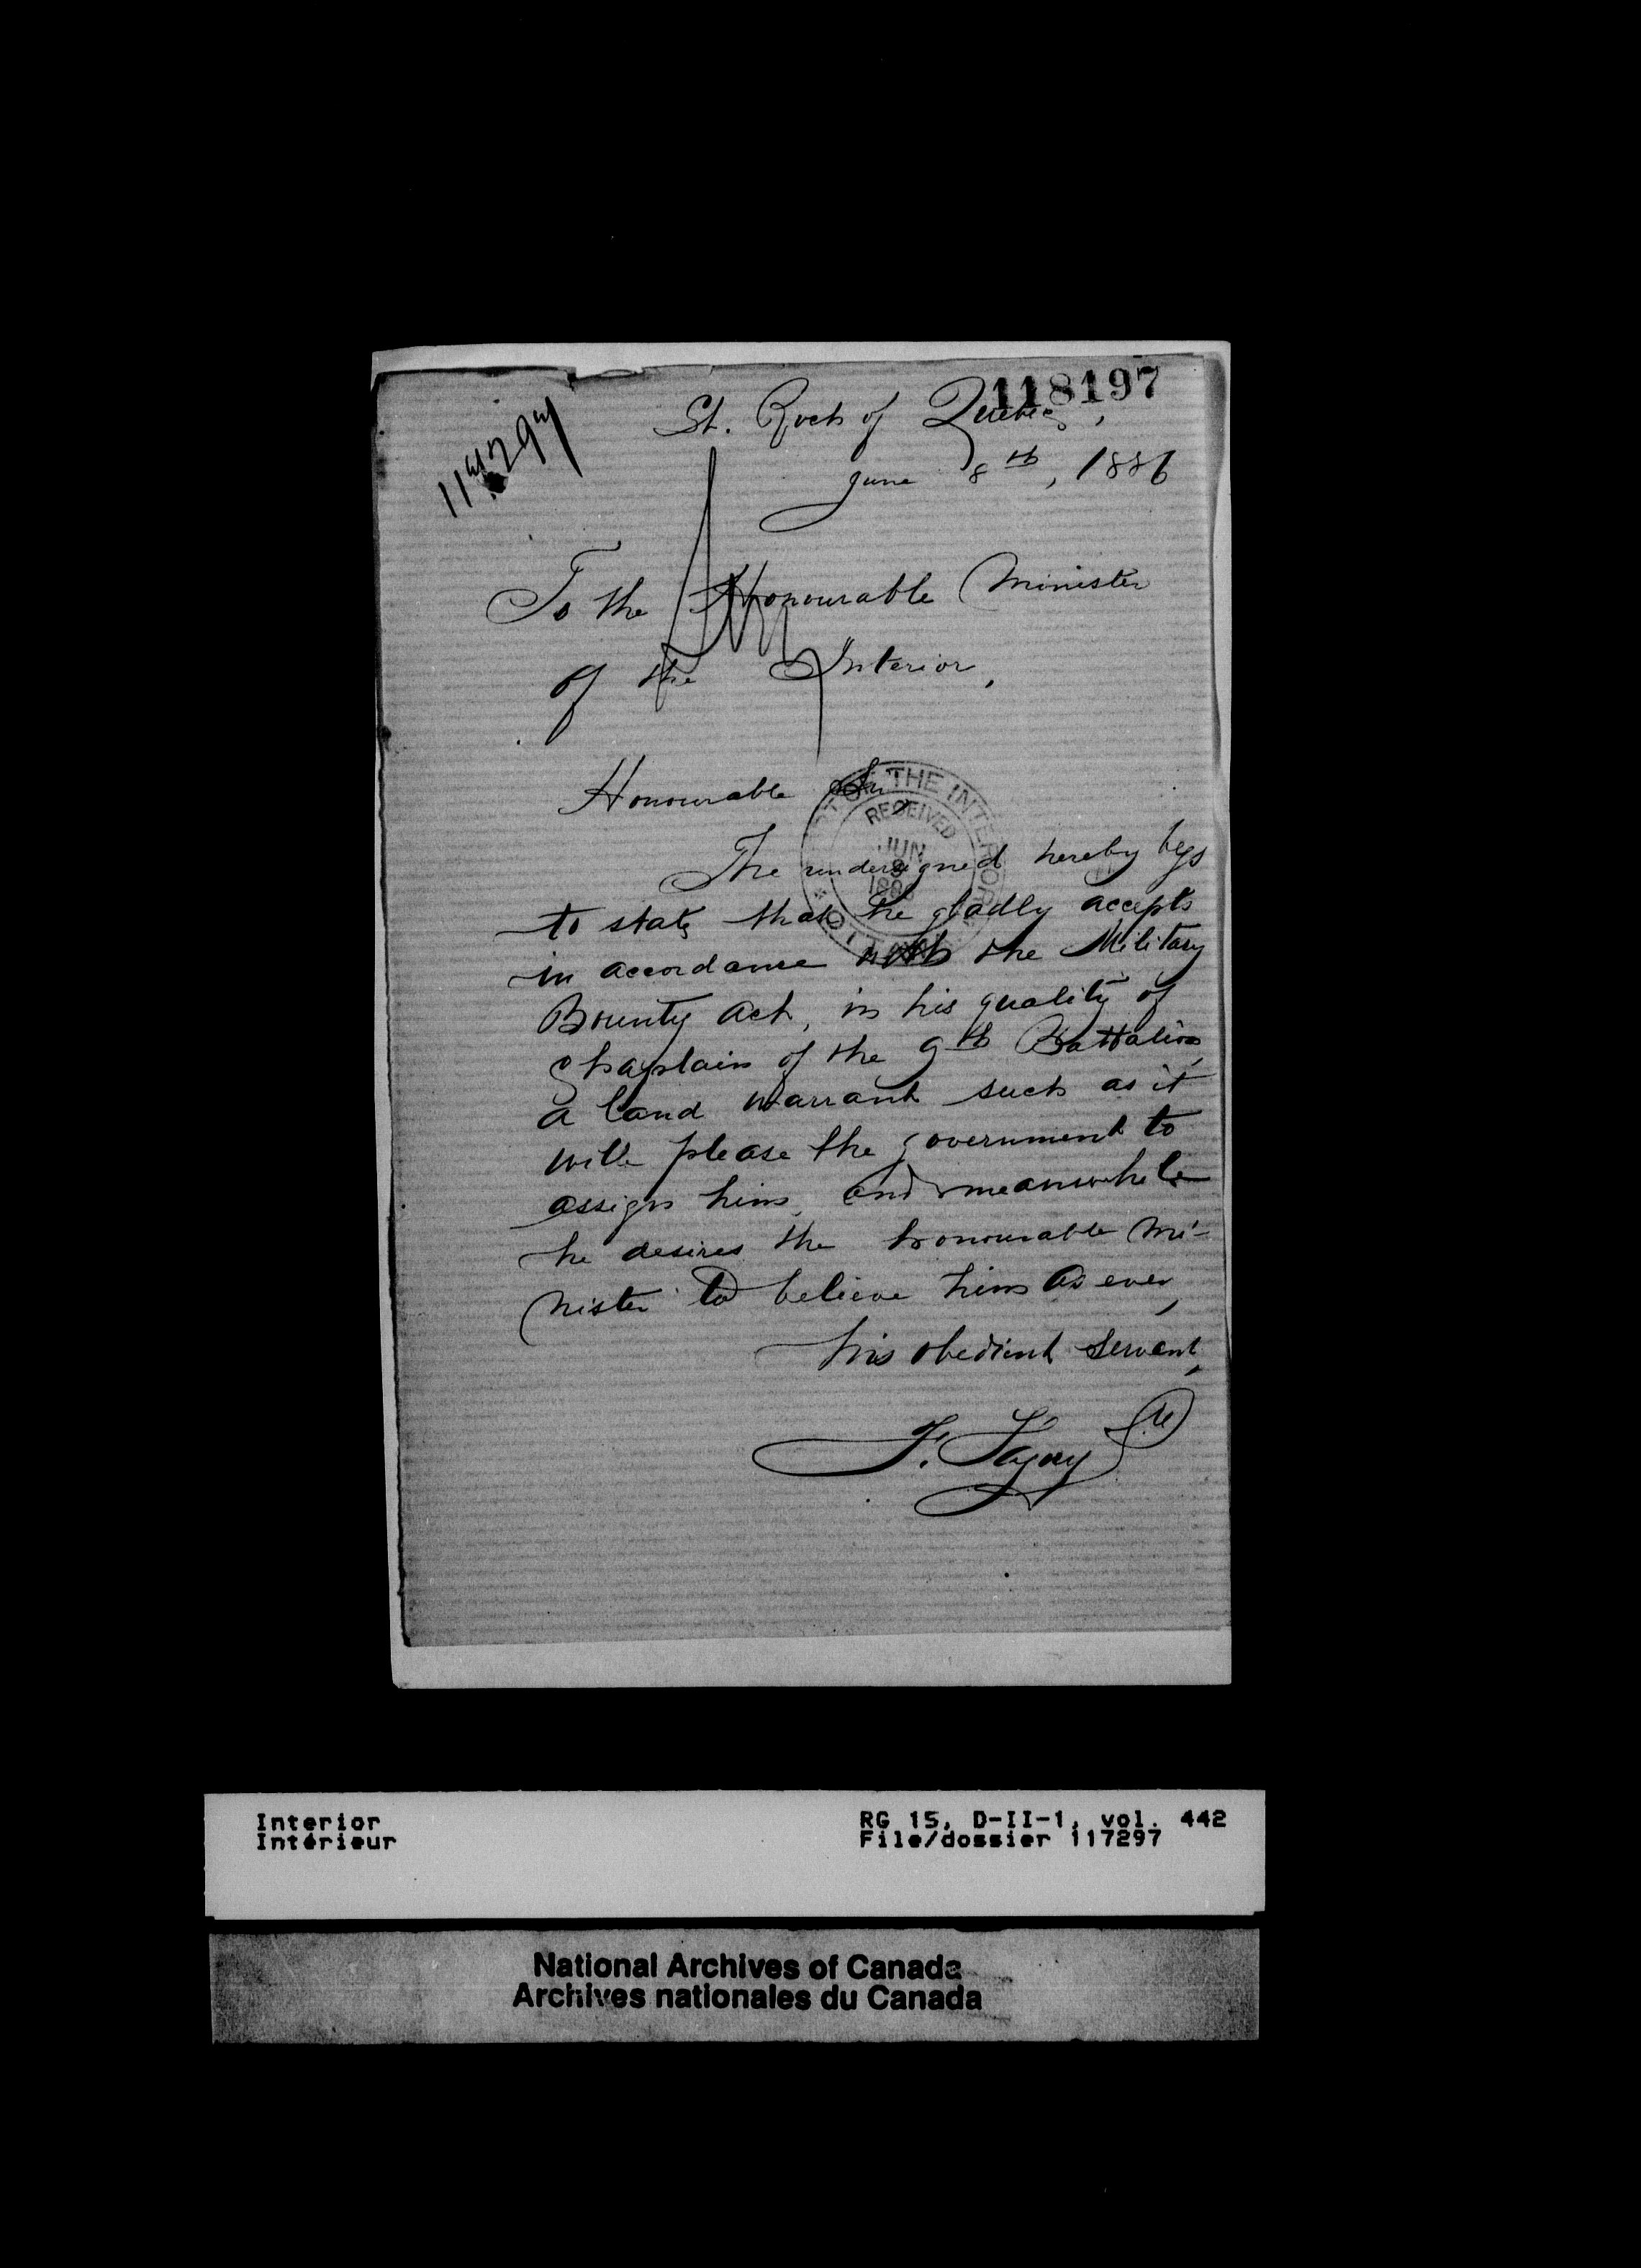 118197
117297
St. Roch of Quebec,
June 8th, 1886
To the Honourable Minister
of the Interior,
Honourable Sir
THE INTERIOR
RECEIVED
JUN
1886
The undersigned hereby begs
to state that he gladly accepts
in accordance with the Military
Bounty Act, in his quality of
Chaplain of the 9th Battalion,
a land warrant such as it
will please the government to
assign him, and meanwhile
he desires the honourable Mi-
nister to believe him as ever,
his obedient servant,
F.
Interior
Intérieur
RG 15, D-II-1, vol. 442
File/dossier 117297
National Archives of Canada
Archives nationales du Canada